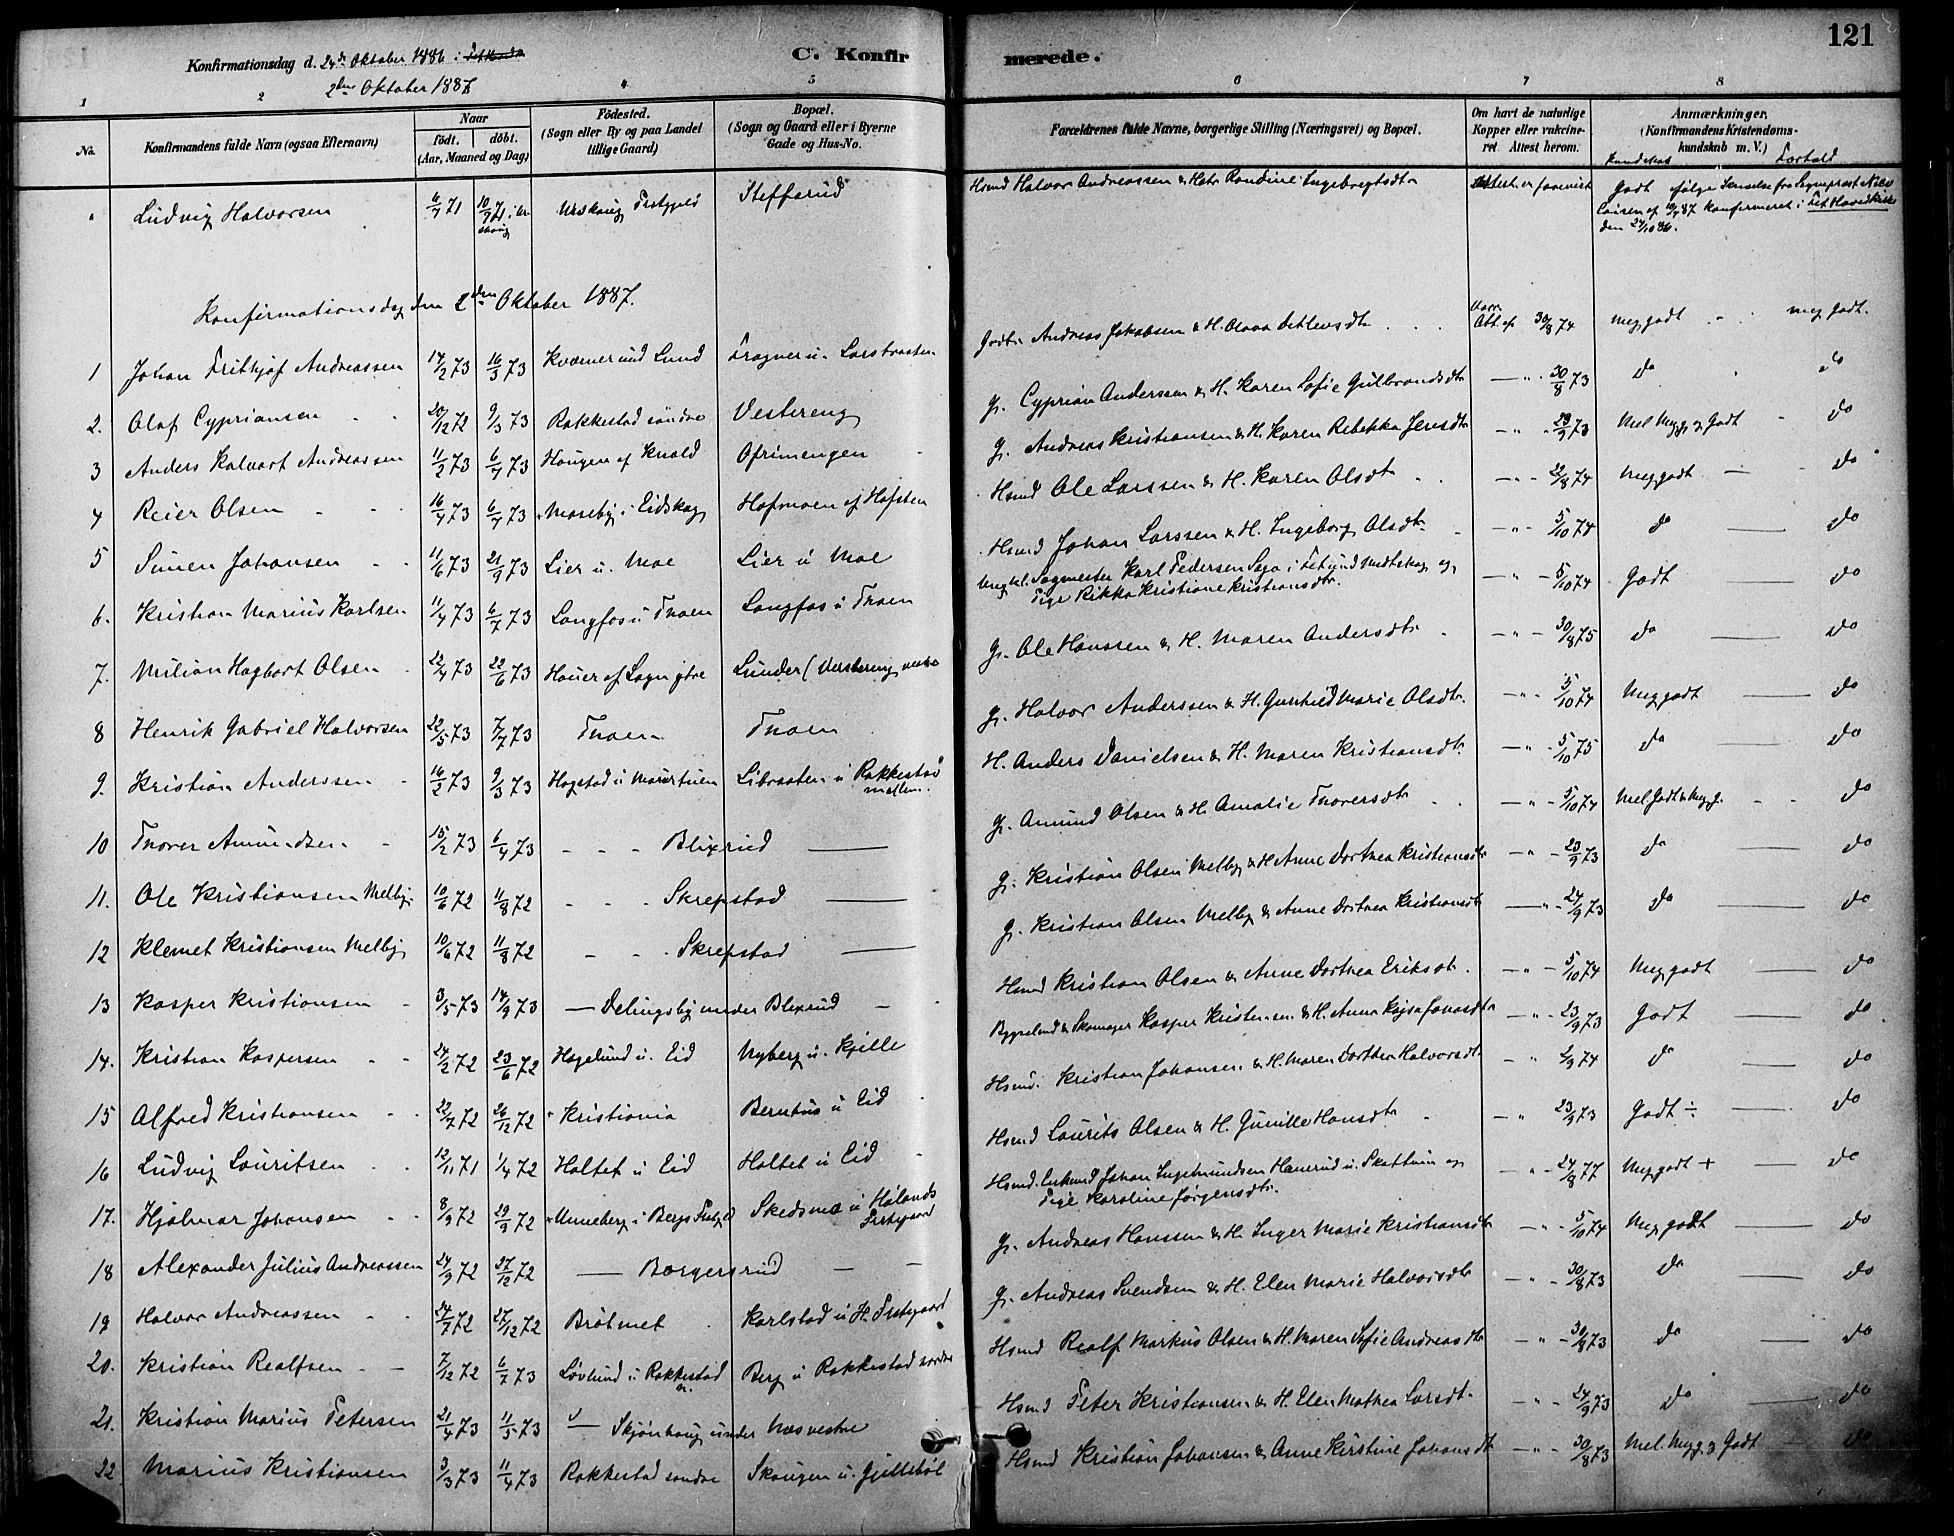 121
Konfirmationsdag d. 24de Oktober 1886 i
2den Oktober 1887
C. Konfirmerede.
1 2 4 5 6 7 8
No.
Konfirmandens fulde Navn (ogsaa Efternavn)
Naar
födt. döbt.
(Aar, Maaned og Dag)
Födested.
(Sogn eller By og paa Landet tillige Gaard)
Bopæl.
(Sogn og Gaard eller i Byerne Gade og Hus-No.
Forældrenes fulde Navne, borgerlige Stilling (Næringsvei) og Bopæl.
Om havt de naturlige Kopper eller vakcineret. Attest herom.
Anmærkninger.
(Konfirmandens Kristendomskundskab m. V.)
Kundskab Forhold
" Ludvig Halvorsen 6/7 71 10/9 71 Urskoug Prstgjeld Stefferud Hsmd Halvor Andreassen & Hstr Randine Ingebregtsdtr Attest er forevist Godt ifølge Skrivelse fra Sogneprest
af 19/9 87 konfirmeret i Fet Hovedkirke
den 24/10 86.
Konfirmationsdag den 2den Oktober 1887.
1 Johan Frithjof Andreassen 14/2 73 16/3 73 Kværner und Lund Fragner u. Larsbraaten Andreas Jakobsen & H. Olava Detlevsdtr Vacc. Att. af 30/8 74 Meg godt meg godt.
2. Olaf Cypriansen 20/12 72 9/3 73 Rakkestad söndre Vestereng G. Cyprian Anderssen & H. Karen Sofie Gulbrandsdtr 30/8 73 do do
3 Anders Halvart Andreassen 11/2 73 6/4 73 Haugen af Knold Ofrimengen G. Andreas Kristiansen & H. Karen Rebekka Jensdtr 23/9 73 Mel Meg g. & Godt do
4 Reier Olsen 16/4 73 6/7 73 Maseby i Eidskog Hofmoen af Hofsten Hsmd Ole Larssen & H. Karen Olsdtr 22/8 74 Meg godt do
5 Simen Johansen 11/6 73 21/9 73 Lier u. Moe Lier u Moe Hsmd Johan Larssen & H. Ingeborg Olsdtr 5/10 74 do do
6. Kristian Marius Karlsen 11/4 73 6/7 73 Langfos u Thoen Langfos u Thoen Ungkl. Sagmester Karl Pedersen i Fet und Midtskog og
Pige Rikka Kristiane Kristiansdtr. 5/10 74 Godt do
7. Milian Hagbart Olsen 22/4 73 22/6 73 Houer af Sogn ytre Lunder (Verstereng G. Ole Hanssen & H. Maren Andersdtr 30/8 75 do do
8 Henrik Gabriel Halvorsen 22/5 73 7/7 73 Thoen Thoen G. Halvor Anderssen & H. Gunhild Marie Olsdtr. 5/10 74 Meg godt do
9. Kristian Anderssen 16/2 73 9/3 73 Hogstad u Libraaten u Rakkestad mellem. H. Anders Danielsen & H. Maren Kristiansdtr 5/10 75 do do
10 Thorer Amundsen 15/2 73 6/4 73 Blixrud G. Amund Olsen & H. Amalie Thorersdtr 5/10 74 Mel Godt & Meg g. do
11. Ole Kristiansen Melby. 10/6 72 11/8 72 Skrepstad G. Kristian Olsen Melby & H Anne Dorthea Kristiansdtr 23/9 73 do do
12 Klemet Kristiansen Melby 10/6 72 11/8 72 Skrepstad G. Kristian Olsen Melby & Anne Dorthea Kristiansdtr 24/9 73 do do
13 Kasper Kristiansen 3/5 73 14/9 73 Delingsby under Blixrud Hsmd Kristian Olsen & Anne Dorthea Eriksdtr. 5/10 74 Meg godt do
14. Kristian Kaspersen 24/2 72 23/6 72 Hagelund u. Eid Nyberg u. Kjelle Bygselmd & Skomager Kasper Kristensen & H. Anna Kajsa Jonasdtr 23/9 73 Godt do
15 Alfred Kristiansen 22/7 72 26/12 72 Kristiania Berntus u Eid Hsmd. Kristian Johansen & H. Maren Dorthea Halvorsdtr 2/9 74 do do
16 Ludvig Lauritsen 12/11 71 1/4 72 Holtet u Eid Holtet u Eid Hsmd Laurits Olsen & H. Gunille Hansdtr 23/9 73 Godt ÷ do
17. Hjalmar Johansen 8/9 72 29/9 72 Unneberg i Bergs Prstgjd Skedsmo u Hølands Prstegaard Hsmd. Enkemd Johan Ingebrudsen Hanerud u. Skattum og
Pige Karoline Jørgensdtr. 24/8 77 Meg godt + do
18 Alexander Julius Andreassen 24/9 72 27/12 72 Borgersrud G. Andreas Hanssen & H. Inger Marie Kristiansdtr 5/10 74 Meg godt do
19 Halvor Andreassen 24/7 72 27/12 72 Bråtmet Karlstad u H. Prstgaard G. Andreas Svendsen & H. Elen Marie Halvorsdtr 30/8 73 do do
20. Kristian Realfsen 7/12 72 6/7 73 Løvlund u Rakkestad Berg u Rakkestad söndre Hsmd Realf Markus Olsen & H. Maren Sofie Andreasdtr 30/8 73 do do
21. Kristian Marius Petersen 21/4 73 11/5 73 Skjönhaug under Næs vestre Hsmd Peter Kristiansen & H. Elen Mathea Larsdtr. 24/9 73 do do
22 Marius Kristiansen 3/3 73 11/4 73 Rakkestad söndre Skougen u. Gjillebøl Hsmd Kristian Johansen & Anne Kirstine Johansdtr 30/8 73 Mel. Meg. g & Godt do